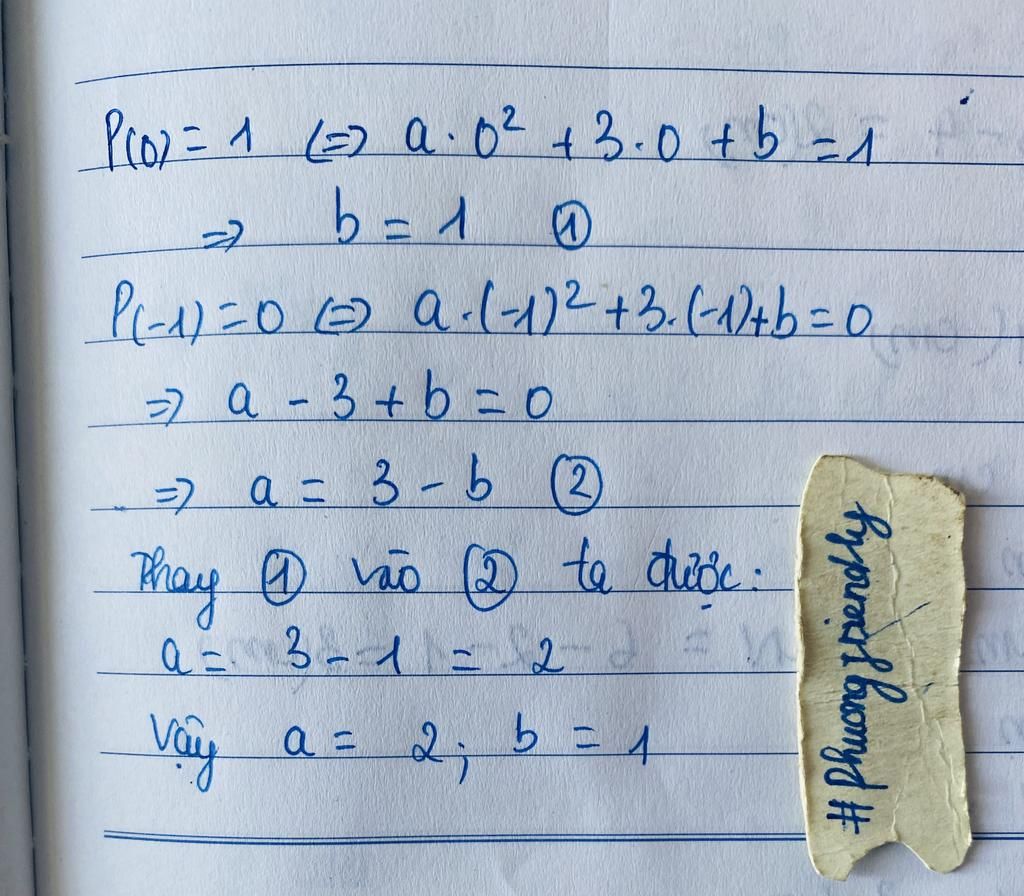 P(0) = 1 (=) a . 0² + 3 . 0 + b = 1
=> b = 1 ①
P(-1) = 0 (=) a . (-1)² + 3 . (-1) + b = 0
=> a - 3 + b = 0
=> a = 3 - b ②
Thay ① vào ② ta được :
a = 3 - 1 = 2
Vậy a = 2 ; b = 1
#phuongfriendly